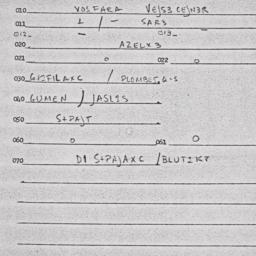 010 VOSFARA VEJSE CEJNER
011 1 / - SARS
012 - 013
020 AZELX3
021 o 022 o
030 / PLOMBEG-S
040 GUMEN / JASLIS
050 S+PAJT
060 o 061 O
070 DI S+PAJAXC / BLUTIKT